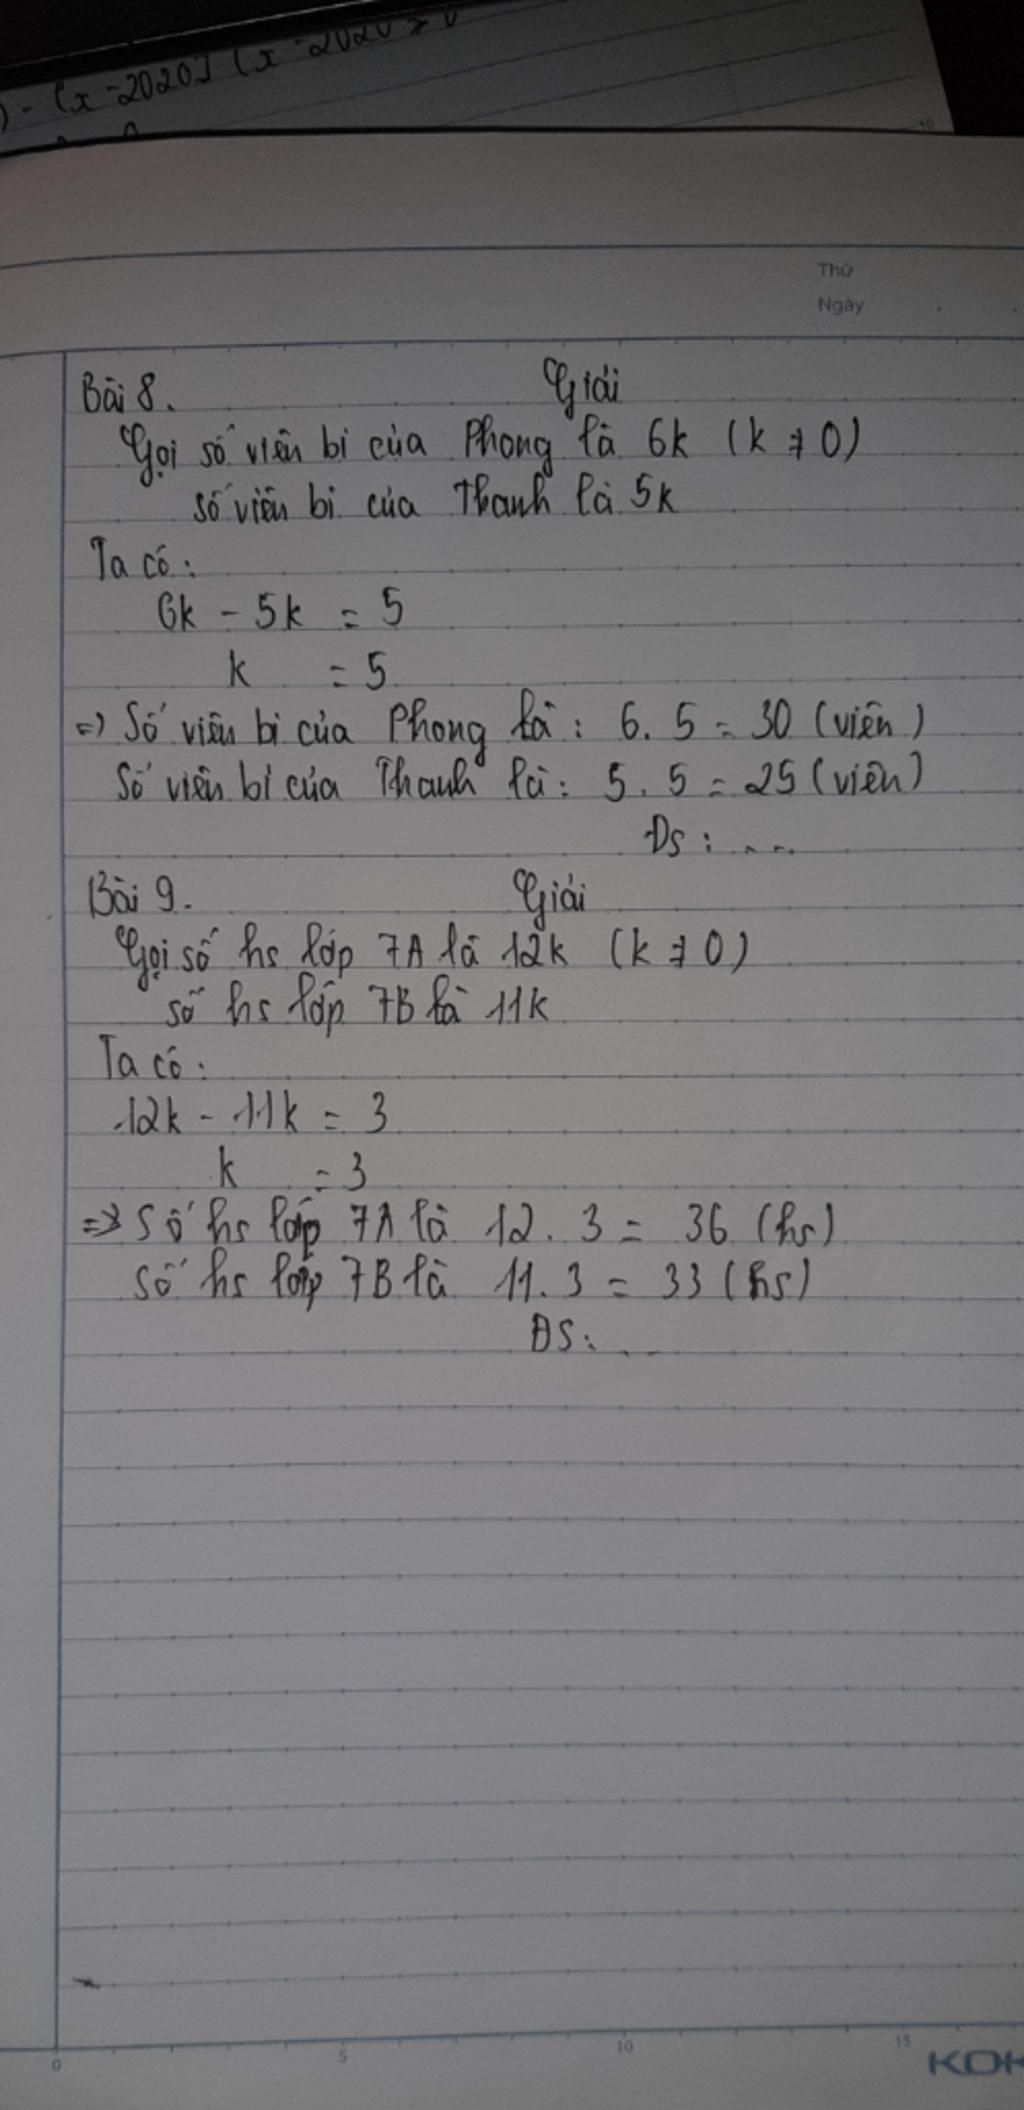 ) - (x - 2020] (x - 2020
Thứ
Ngày
Bài 8. Giải
Gọi số viên bi của Phong là 6k (k ≠ 0)
số viên bi của Thanh là 5k
Ta có:
6k - 5k = 5
k = 5
=) Số viên bi của Phong là: 6. 5 = 30 (viên)
Số viên bi của Thanh là: 5. 5 = 25 (viên)
Đs: ...
Bài 9. Giải
Gọi số hs lớp 7A là 12k (k ≠ 0)
số hs lớp 7B là 11k
Ta có:
12k - 11k = 3
k = 3
=> Số hs lớp 7A là 12. 3 = 36 (hs)
Số hs lớp 7B là 11. 3 = 33 (hs)
ĐS: ...
0 5 10 15
KOK